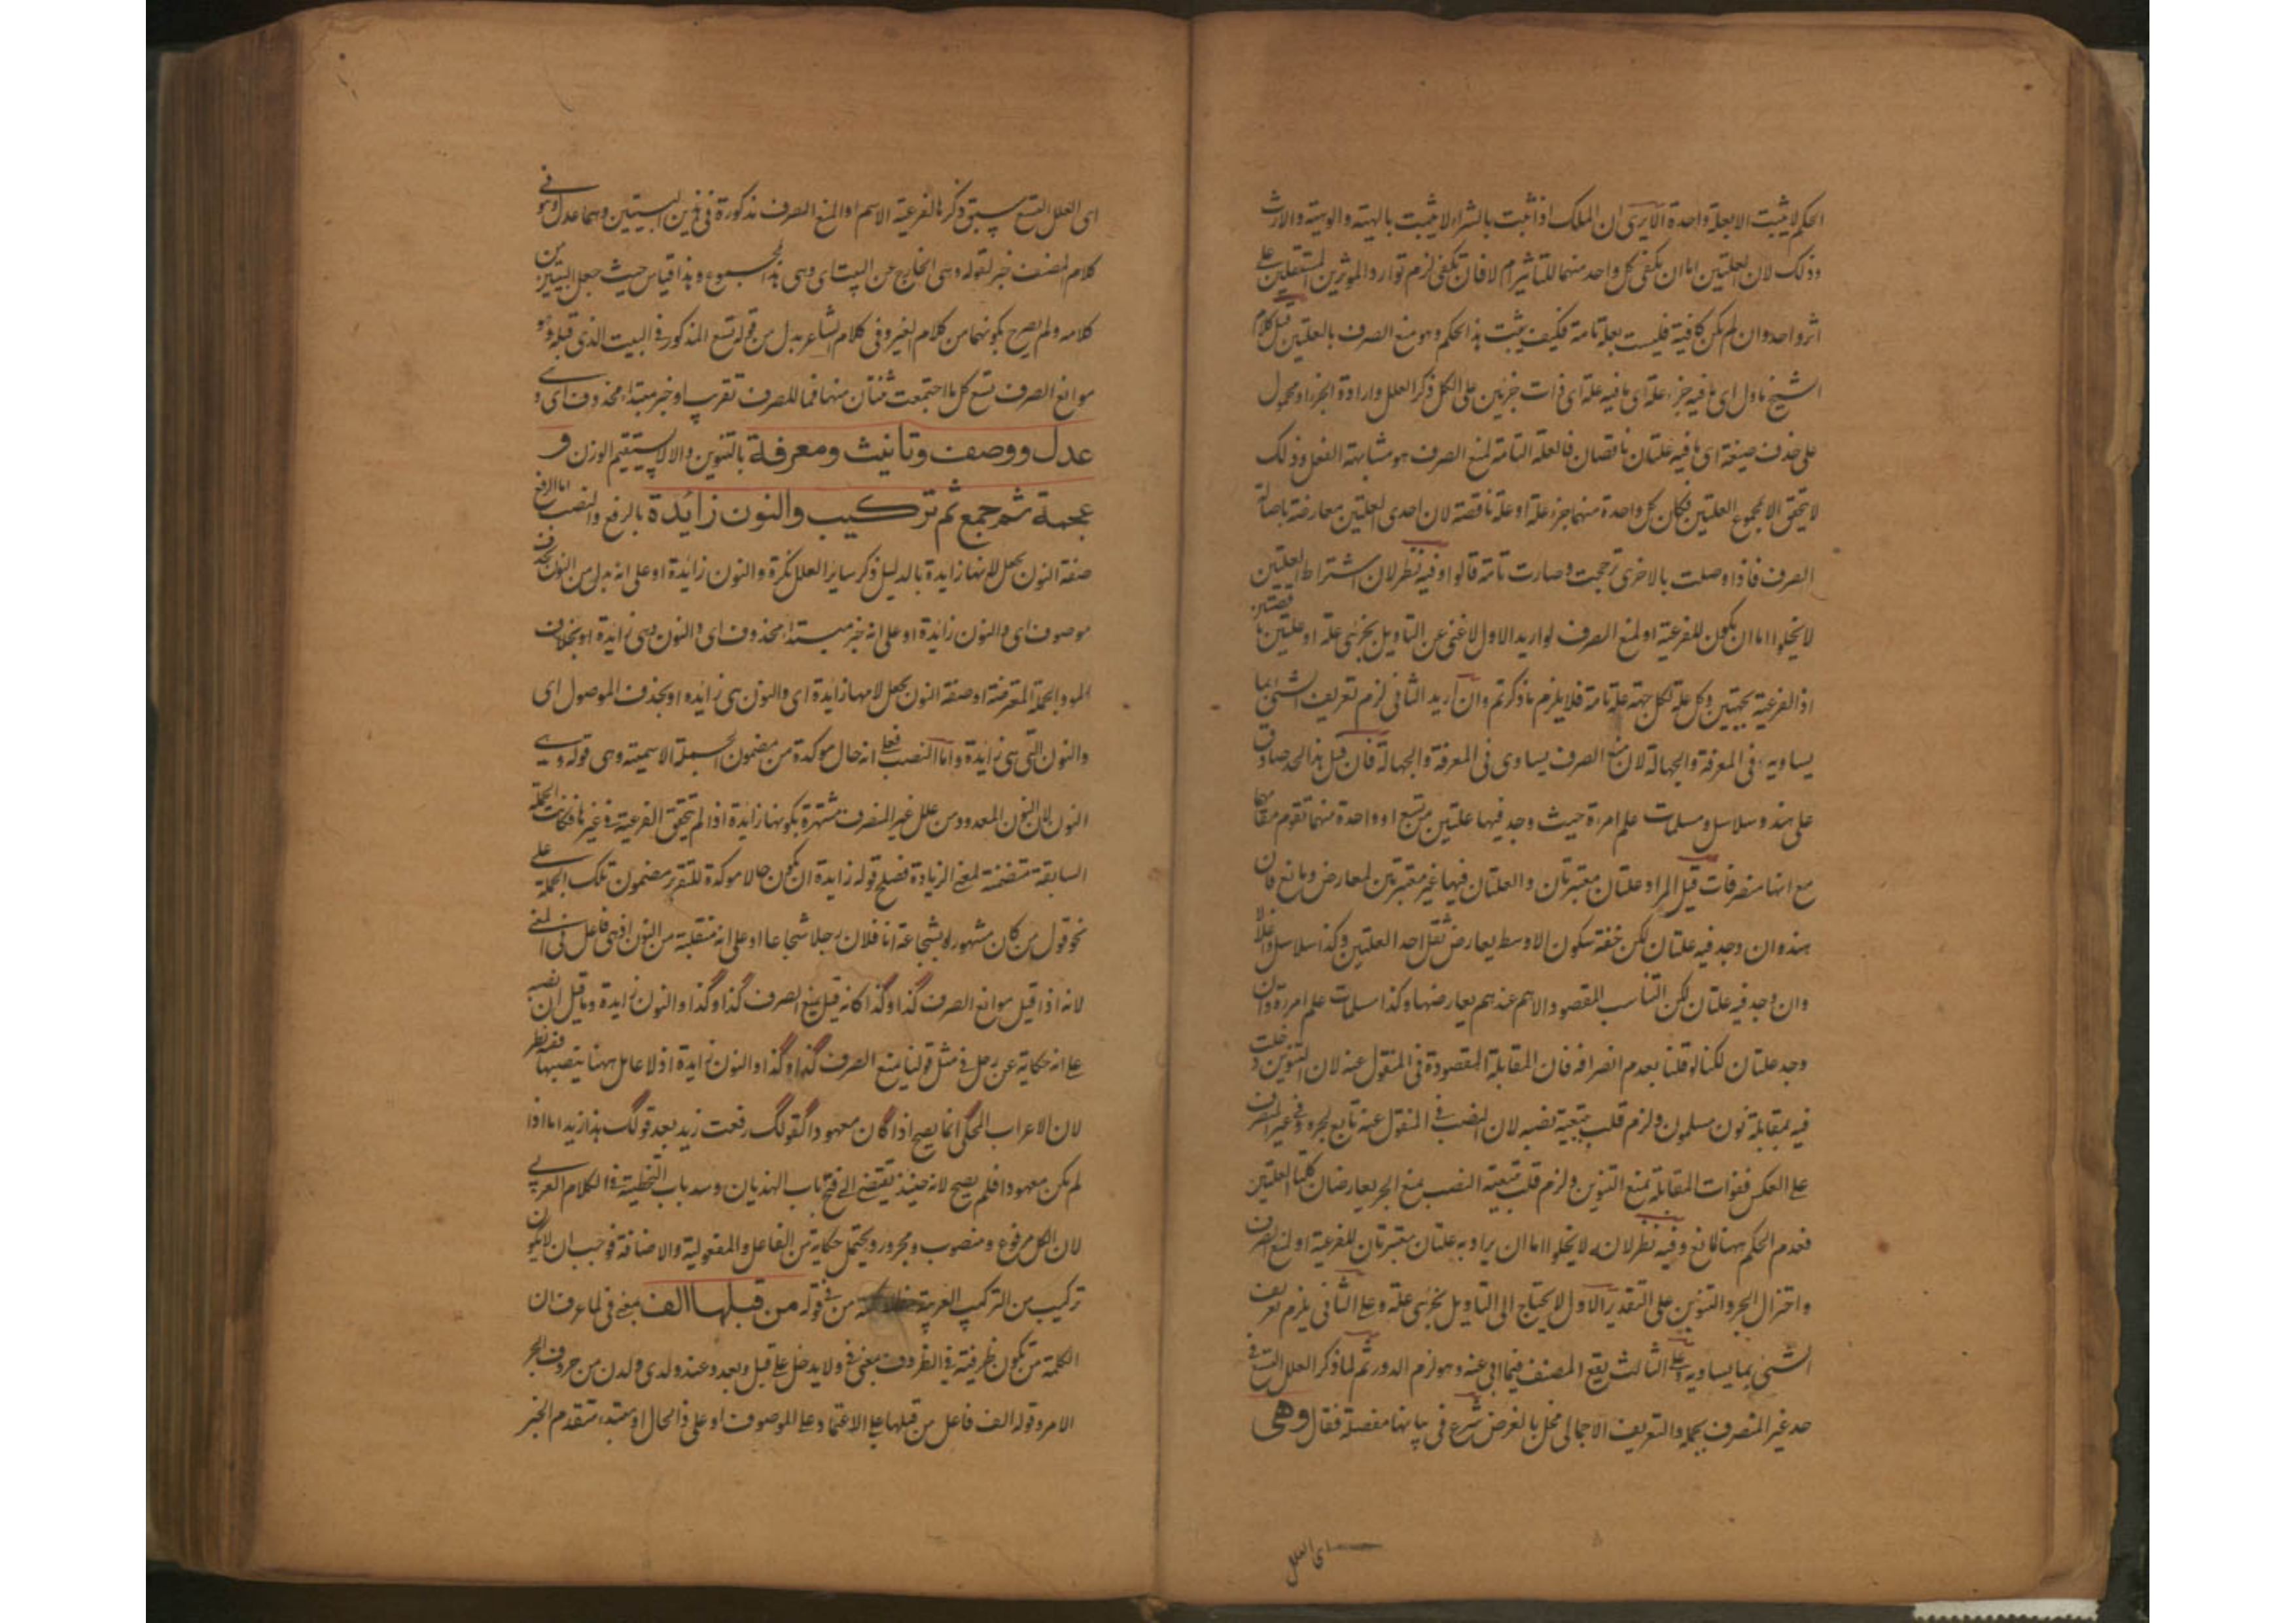 الحكم لا يثبت الا بعلة واحدة الا يرى ان الملك اذا ثبت بالشراء لا يثبت بالهبة والوهبة والارث
وذلك لان العلتين اما ان يكفى كل واحد منهما للتاثير ام لا فان يكفى لزم توارد الموثرين المستقلين على
اثر واحد وان لم يكن كافية فليست بعلة تامة فكيف يثبت هذا الحكم وهو منع الصرف بالعلتين قيل كلام
الشيخ ماول اى ما فيه جزء علة اى ما فيه علة اى ذات جزئين على الكل ذكر العلل وارادة الجزء او محمول
على حذف صيغة اى ما فيه علتان ناقصان فالعلة التامة لمنع الصرف هو مشابهة الفعل وذلك
لا يتحقق الا بمجموع العلتين فكان كل واحدة منهما جزء علة او علة ناقصة لان احدى العلتين معارضة باصالة
الصرف فاذا وصلت بالاخرى ترجحت وصارت تامة قالوا وفيه نظر لان اشتراط العلتين
لا يخلوا اما ان يكون للفرعية او لمنع الصرف لو اريد الاول لا غنى عن التاويل بجزئى علة او علتين ناقصتين
اذ الفرعية بجهتين وكل علة لكل جهة علة تامة فلا يلزم ما ذكرتم وان اريد الثانى لزم تعريف الشئ بما
يساويه فى المعرفة والجهالة لان منع الصرف يساوى فى المعرفة والجهالة فان قيل هذا الحد صادق
على هند وسلاسل ومسلمات علم امرءة حيث وجد فيها علتين من تسع او واحدة منهما تقوم مقامها
مع انها منصرفات قيل المراد علتان معتبرتان والعلتان فيها غير معتبرتين لمعارض ومانع فان
هند وان وجد فيه علتان لكن خفة سكون الاوسط يعارض ثقل احد العلتين وكذا سلاسل واغلالا
وان وجد فيه علتان لكن التناسب المقصود الاهم عندهم يعارضها وكذا مسلمات علم امرءة وان
وجد علتان لكنا لو قلنا بعدم انصرافه فات المقابلة المقصودة فى المنقول عنه لان التنوين دخلت
فيه بمقابلة نون مسلمون ولزم قلب تبعية نصبه لان النصب فى المنقول عنه تابع لجره وفى غير المنصرف
على العكس ففوات المقابلة بمنع التنوين ولزم قلب تبعية النصب بمنع الجر يعارضان كلتا العلتين
فعدم الحكم ههنا لمانع وفيه نظر لانه لا يخلوا اما ان يراد به علتان معتبرتان للفرعية او لمنع الصرف
واختزال الجر والتنوين على التقدير الاول لا يحتاج الى التاويل بجزئى علة وعلى الثانى يلزم تعريف
الشئ بما يساويه وعلى الثالث يقع المصنف فيما ابى عنه وهو لزم الدور ثم لما ذكر العلل التسع فى
حد غير المنصرف بجملة والتعريف الاجمالى مخل بالغرض شرع فى بيانها مفصلة فقال وهى
اى العلل
اى العلل التسع سبق ذكرها لفرعية الاسم او المنع الصرف مذكورة فى هذين البيتين وهما عدل وهو فى
كلام المصنف خبر لقوله وهى الخارج عن البيت اى وهى هذا المجموع وهذا قياس حيث جعل البيتين من
كلامه ولم يصرح بكونهما من كلام الغير وفى كلام الشاعر بدل من قوله تسع المذكور فى البيت الذى قبله وهو
موانع الصرف تسع كل ما اجتمعت ثنتان منها فما للصرف تقريب او خبر مبتداء محذوف اى وهى
عدل ووصف وتانيث ومعرفة بالتنوين والا لا يستقيم الوزن و
عجمة ثم جمع ثم تركيب والنون زائدة بالرفع والنصب اما الرفع
صفة النون بجعل لامها زايدة بالدليل ذكر سائر العلل نكرة والنون زائدة او على انه بدل من النون بحذف
موصوف اى والنون زائدة او على انه خبر مبتداء محذوف اى والنون وهى زايدة او بخلاف
المود الجملة المعترضة او صفة النون بجعل لامها زايدة اى والنون هى زايده او بحذف الموصول اى
والنون التى هى زايدة واما النصب فعلى انه حال موكدة من مضمون الجملة الاسمية وهى قوله وهى
النون لان النون المعدود من علل غير المنصرف مشتهرة بكونها زايدة اذا لم يتحقق الفرعية فى غيرها فكانت الجملة
السابقة متضمنة لمعنى الزيادة فصلح قوله زايدة ان يكون حالا موكدة للتقرير مضمون تلك الجملة على
نحو قول من كان مشهورا بشجاعة انا فلان رجلا شجاعا او على انه منقلبة من النون اذ هى فاعل فى المعنى
لانه اذا قيل موانع الصرف كذا وكذا كانه قيل يمنع الصرف كذا وكذا والنون زايدة وما قيل ان نصبه
على انه حكاية عن رجل فى مثل قولنا يمنع الصرف كذا وكذا والنون زايدة اذ لا عامل ههنا ينصبها ففيه نظر
لان الاعراب المحكى انما يصح اذا كان معهودا كقولك رفعت زيد بعد قولك هذا زيد اما اذا
لم يكن معهودا فلم يصح لانه حينئذ يقتضى الى فتح باب الهذيان وسد باب التخطية فى الكلام العربى
لان الكل مرفوع ومنصوب ومجرور ويحتمل حكاية من الفاعل والمفعولية والاضافة فوجب ان لا يكون
تركيب من التركيب العربية من فى قوله من قبلها الف بمعنى فى لما عرف ان
الكلمة من تكون ظرفية فى الظروف بمعنى فى ولا يدخل على قبل وبعد وعند ولدى ولدن من حروف الجر
الا من وقوله الف فاعل من قبلها على الاعتماد على الموصوف او على ذا الحال او مبتداء متقدم الخبر